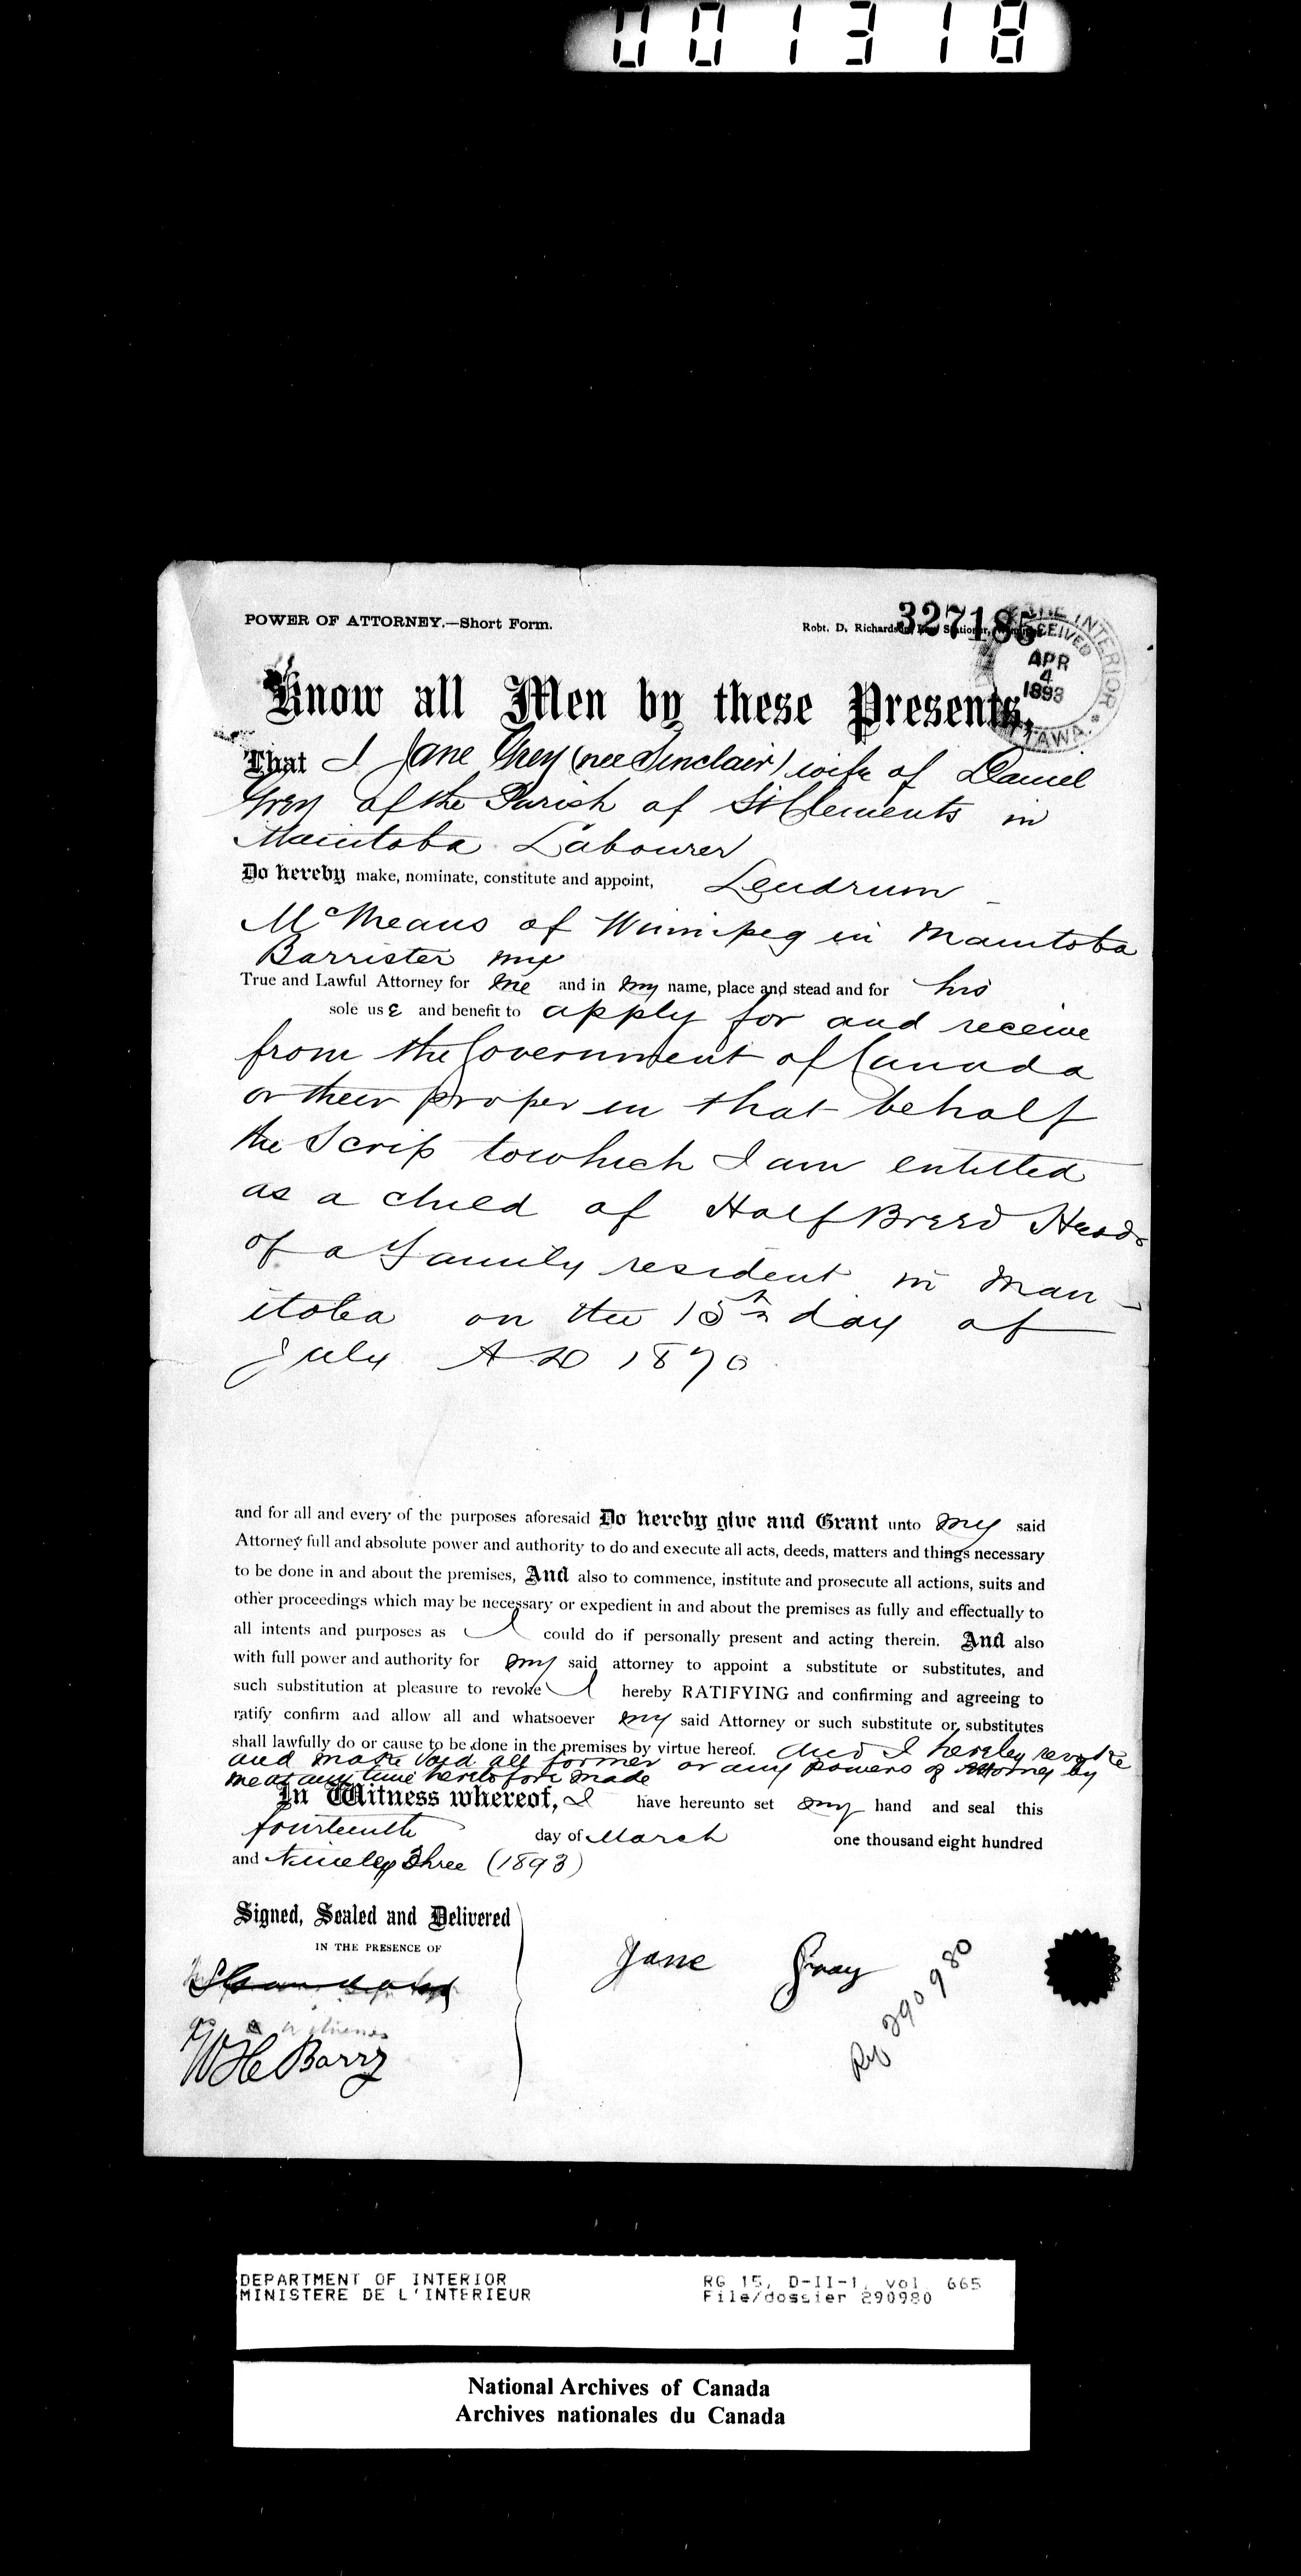 001318
POWER OF ATTORNEY.—Short Form.
327185
Robt. D. Richardson, Stationer,
THE INTERIOR
RECEIVED
APR
4
1893
OTTAWA.
Know all Men by these Presents,
That I Jane Grey (nee Sinclair) wife of Daniel
Grey of the Parish of St Clements in
Manitoba Labourer
Do hereby make, nominate, constitute and appoint, Lendrum
McMeans of Winnipeg in Manitoba
Barrister my
True and Lawful Attorney for me and in my name, place and stead and for his
sole use and benefit to apply for and receive
from the Government of Canada
or their proper in that behalf
the Scrip to which I am entitled
as a child of Half Breed Heads
of a Family resident in Man-
itoba on the 15th day of
July A D 1870
and for all and every of the purposes aforesaid Do hereby give and Grant unto my said
Attorney full and absolute power and authority to do and execute all acts, deeds, matters and things necessary
to be done in and about the premises, And also to commence, institute and prosecute all actions, suits and
other proceedings which may be necessary or expedient in and about the premises as fully and effectually to
all intents and purposes as I could do if personally present and acting therein. And also
with full power and authority for my said attorney to appoint a substitute or substitutes, and
such substitution at pleasure to revoke I hereby RATIFYING and confirming and agreeing to
ratify confirm and allow all and whatsoever my said Attorney or such substitute or substitutes
shall lawfully do or cause to be done in the premises by virtue hereof. And I hereby revoke
and make void all former or any powers of Attorney by
me at any time heretofore made
In Witness whereof, I have hereunto set my hand and seal this
fourteenth day of March one thousand eight hundred
and Ninety Three (1893)
Signed, Sealed and Delivered
IN THE PRESENCE OF
Jane Gray
as a witness
W H Barry
Ref 290980
DEPARTMENT OF INTERIOR RG 15, D-II-1, vol. 665
MINISTERE DE L'INTERIEUR File/dossier 290980
National Archives of Canada
Archives nationales du Canada